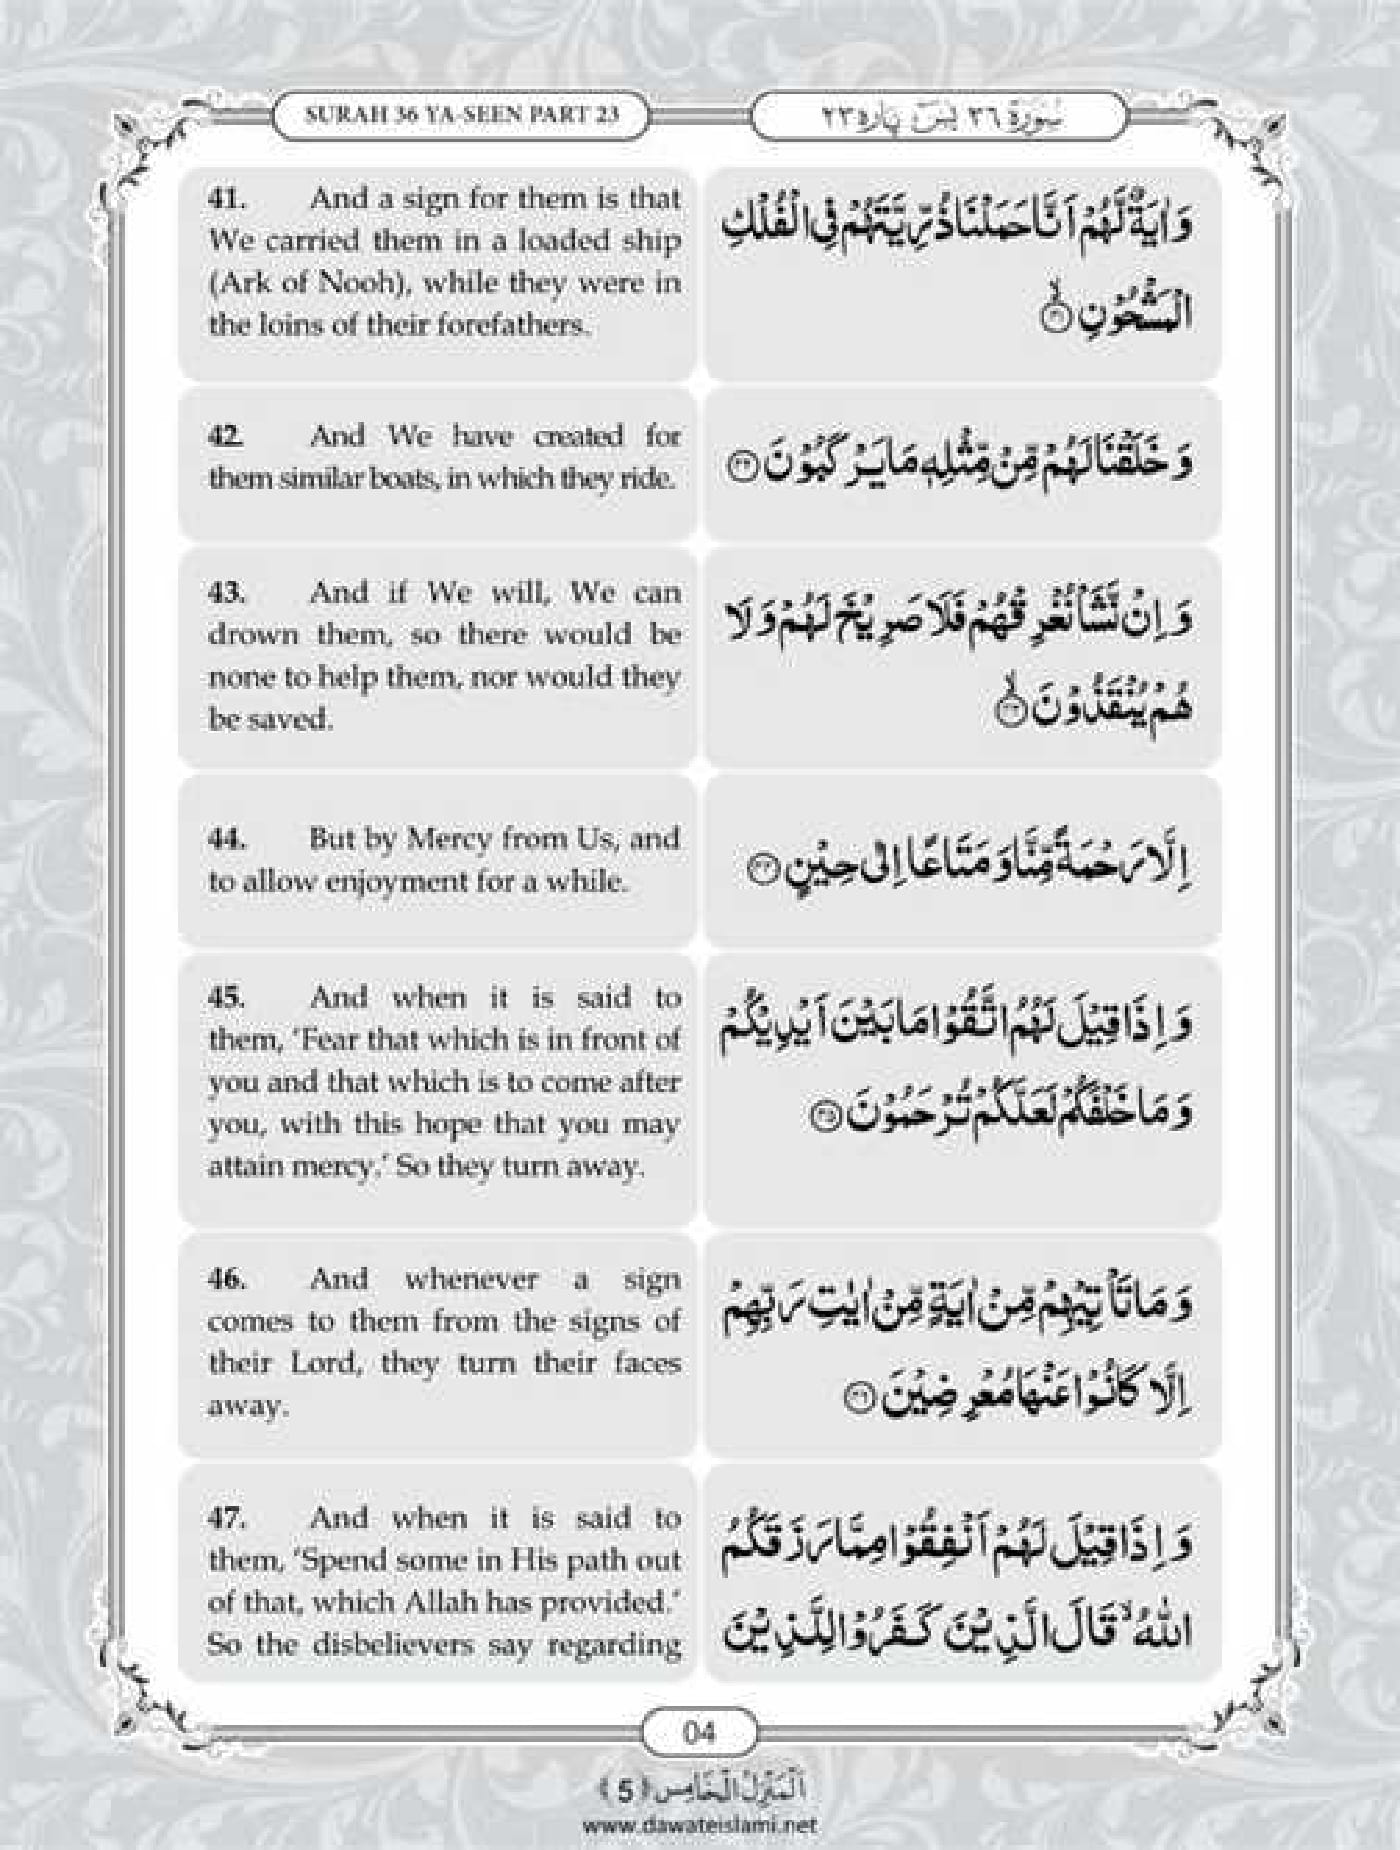 SURAH 36 YA-SEEN PART 23
سُوْرَۃ ٣٦ یٰسٓ پارہ ٢٣
41. And a sign for them is that
We carried them in a loaded ship
(Ark of Nooh), while they were in
the loins of their forefathers.
وَ اٰیَةٌ لَّهُمْ اَنَّا حَمَلْنَا ذُرِّیَّتَهُمْ فِی الْفُلْكِ
الْمَشْحُوْنِۙ(۴۱)
42. And We have created for
them similar boats, in which they ride.
وَ خَلَقْنَا لَهُمْ مِّنْ مِّثْلِهٖ مَا یَرْكَبُوْنَ(۴۲)
43. And if We will, We can
drown them, so there would be
none to help them, nor would they
be saved.
وَ اِنْ نَّشَاْ نُغْرِقْهُمْ فَلَا صَرِیْخَ لَهُمْ وَ لَا
هُمْ یُنْقَذُوْنَۙ(۴۳)
44. But by Mercy from Us, and
to allow enjoyment for a while.
اِلَّا رَحْمَةً مِّنَّا وَ مَتَاعًا اِلٰى حِیْنٍ(۴۴)
45. And when it is said to
them, ‘Fear that which is in front of
you and that which is to come after
you, with this hope that you may
attain mercy.’ So they turn away.
وَ اِذَا قِیْلَ لَهُمُ اتَّقُوْا مَا بَیْنَ اَیْدِیْكُمْ
وَ مَا خَلْفَكُمْ لَعَلَّكُمْ تُرْحَمُوْنَ(۴۵)
46. And whenever a sign
comes to them from the signs of
their Lord, they turn their faces
away.
وَ مَا تَاْتِیْهِمْ مِّنْ اٰیَةٍ مِّنْ اٰیٰتِ رَبِّهِمْ
اِلَّا كَانُوْا عَنْهَا مُعْرِضِیْنَ(۴۶)
47. And when it is said to
them, ‘Spend some in His path out
of that, which Allah has provided.’
So the disbelievers say regarding
وَ اِذَا قِیْلَ لَهُمْ اَنْفِقُوْا مِمَّا رَزَقَكُمُ
اللّٰهُۙ قَالَ الَّذِیْنَ كَفَرُوْا لِلَّذِیْنَ
04
اَلْمَنْزِلُ الْخَامِس ﴿5﴾
www.dawateislami.net